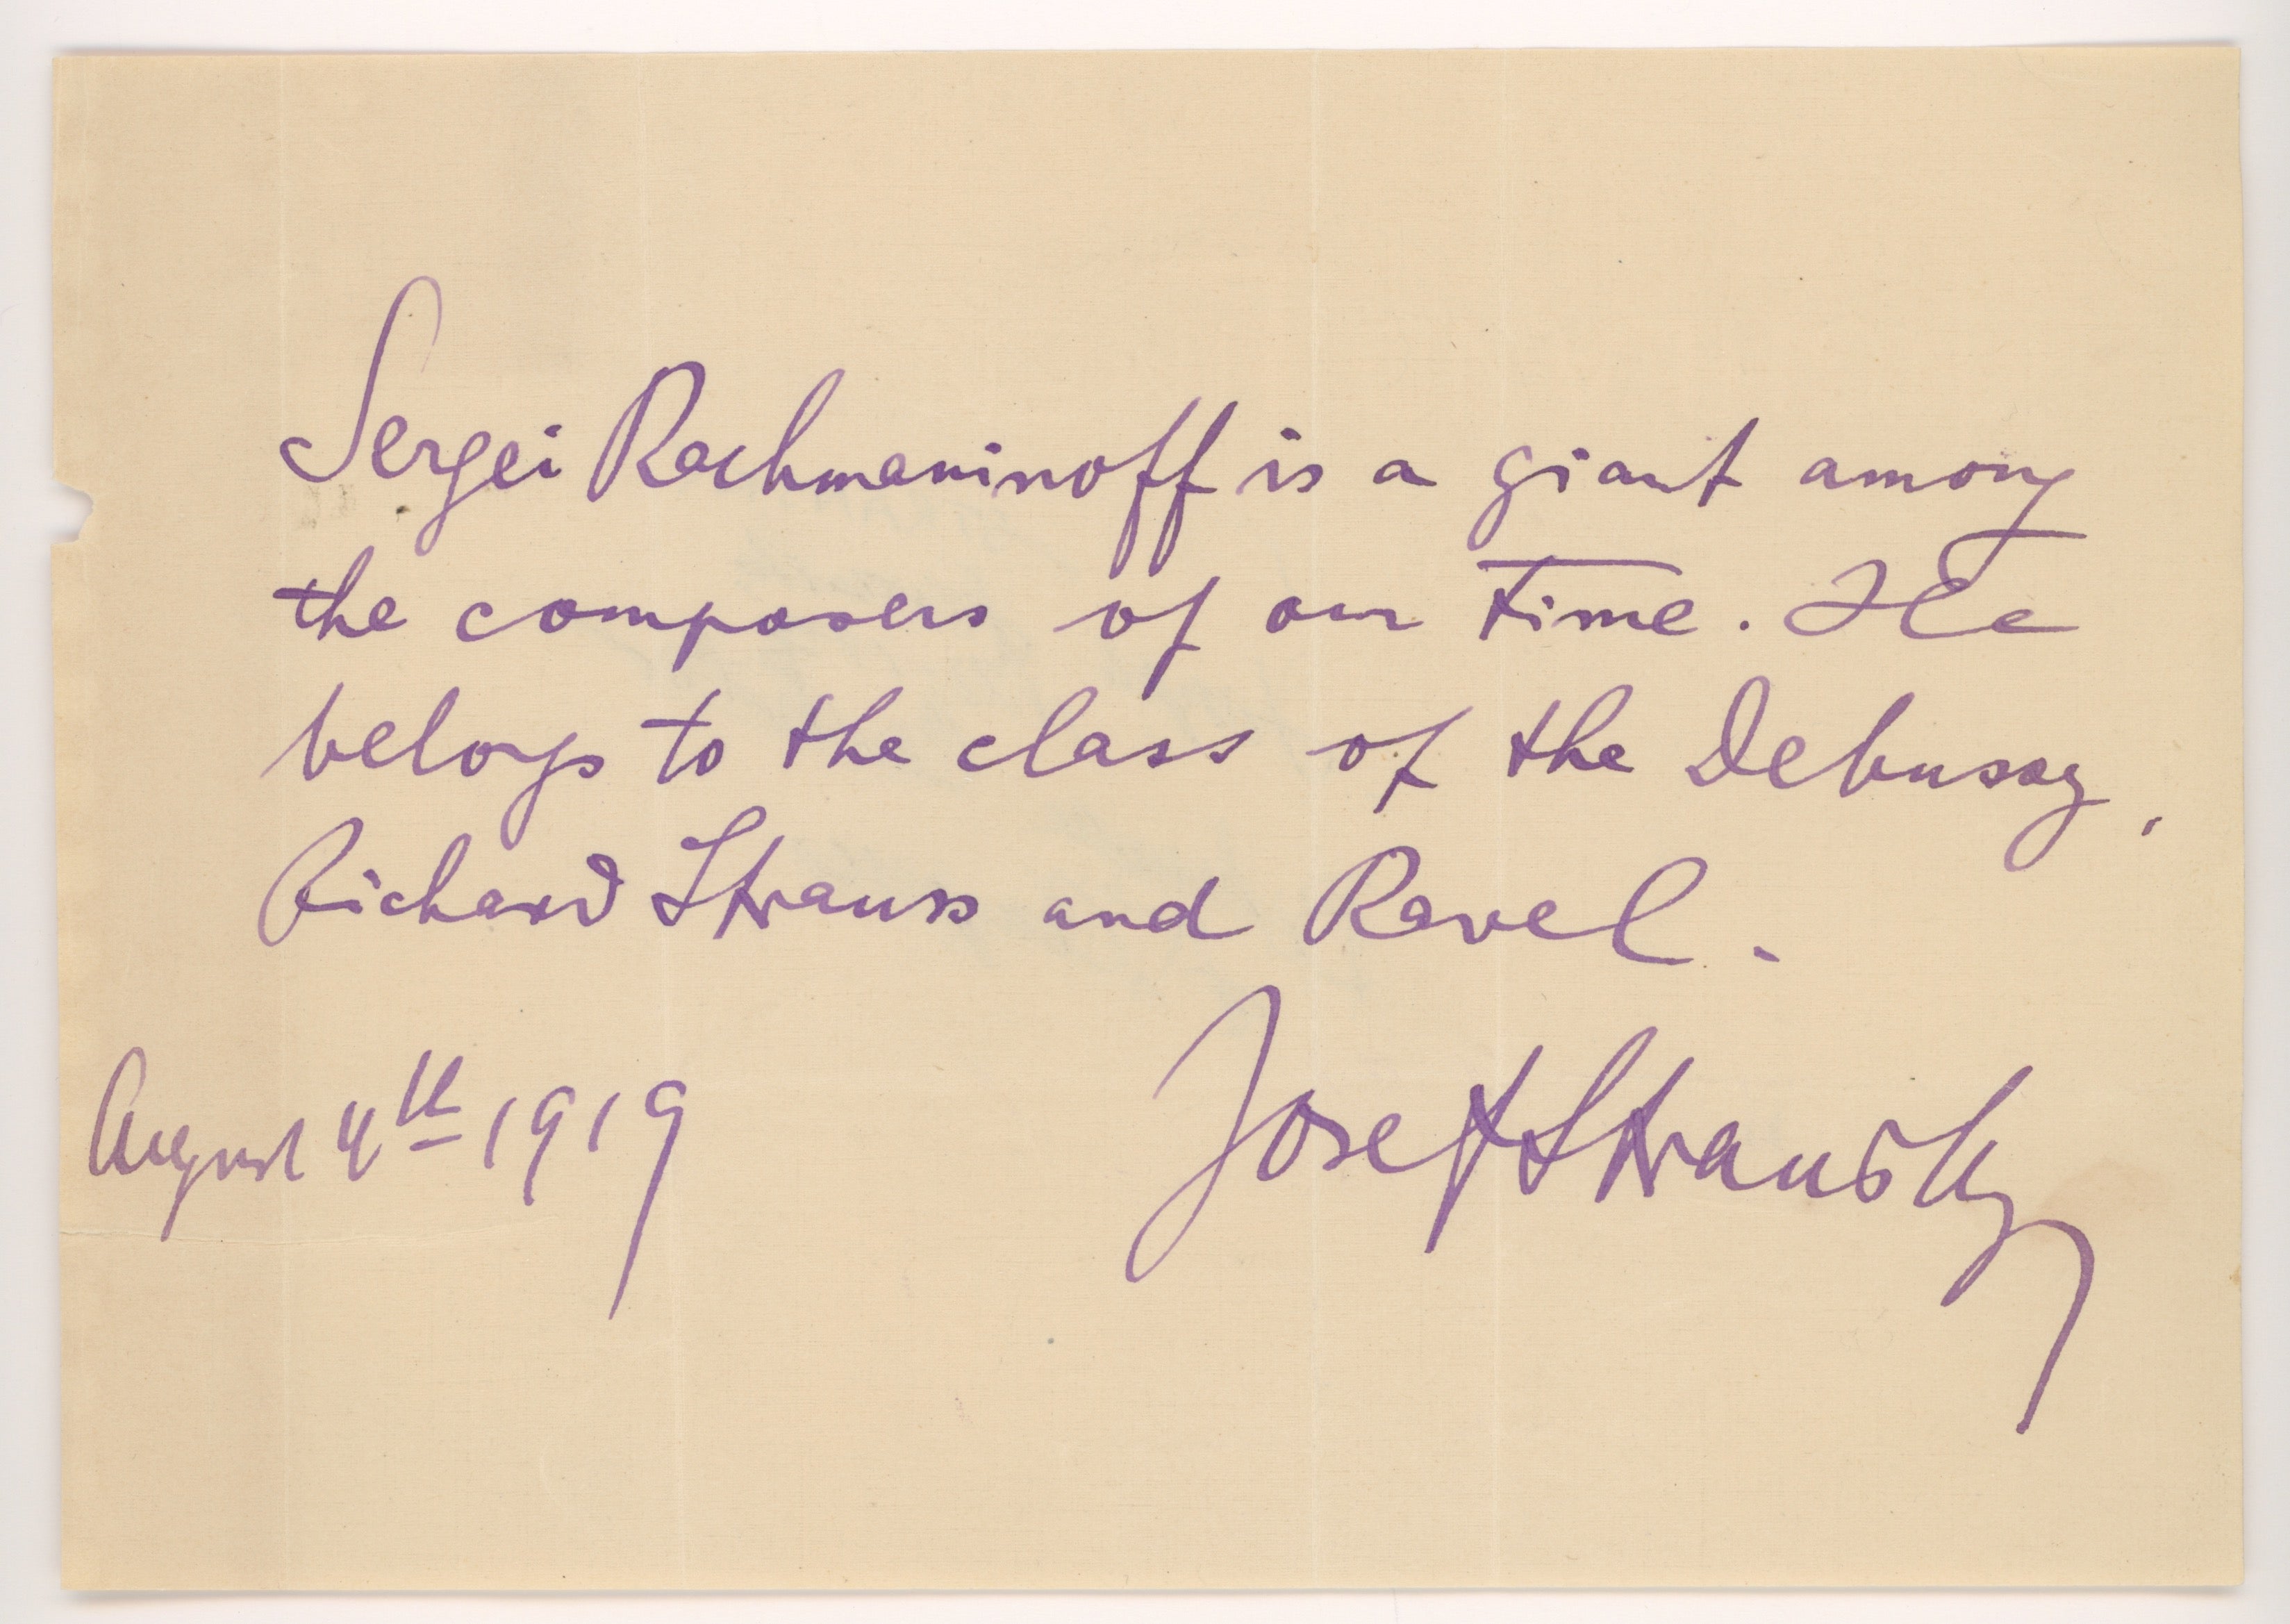 Sergei Rachmaninoff is a giant among
the composers of our time. He
belongs to the class of the Debussy,
Richard Strauss and Ravel.
August 4th 1919
Josef Stransky